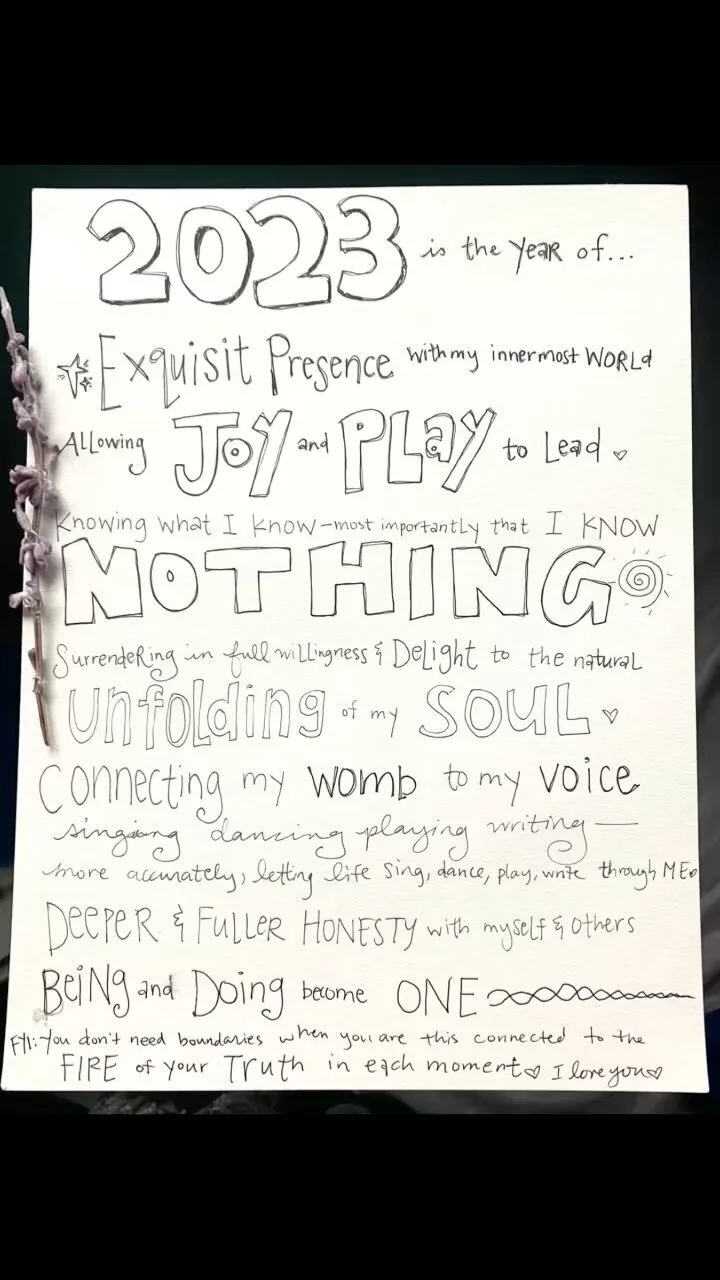 2023 is the YEAR of...
Exquisit Presence with my innermost WORLd
ALLowing JOY and PLAY to Lead
Knowing what I know-most importantly that I KNOW
NOTHING
SurrendeRing in full wiLLingness & DeLight to the naturaL
unfolding of my SOUL
Connecting my womb to my voice
singing dancing playing writing—
more accurately, letting life sing, dance, play, write through ME.
DEEPER & FULLER HONESTY with myself & others
BeiNg and Doing become ONE
FYI: You don't need boundaries when you are this connected to the
FIRE of your Truth in each moment I love you